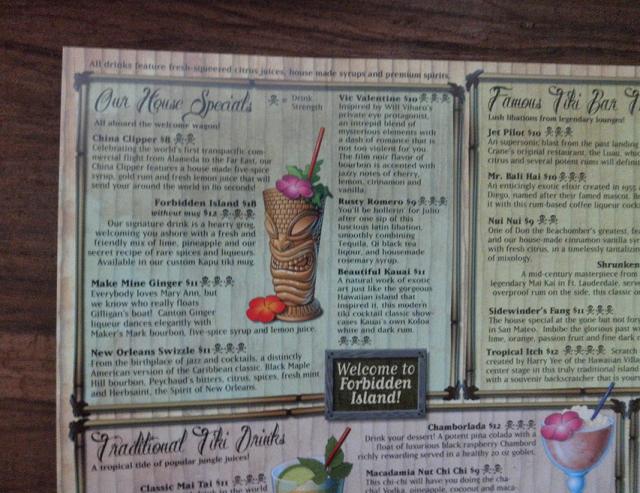 All drinks feature fresh-squeezed citrus juices, house made syrups and premium spirits.
Our House Specials
= Drink
Strength
All aboard the welcome wagon!
China Clipper $8
Celebrating the world's first transpacific com-
mercial flight from Alameda to the Far East, our
China Clipper features a house made five-spice
syrup, gold rum and fresh lemon juice that will
send your around the world in 80 seconds!
Forbidden Island $18
without mug $12
Our signature drink is a hearty grog,
welcoming you ashore with a fresh and
friendly mix of lime, pineapple and our
secret recipe of rare spices and liqueurs.
Available in our custom Kapu tiki mug.
Make Mine Ginger $11
Everybody loves Mary Ann, but
we know who really floats
Gilligan's boat! Canton Ginger
liqueur dances elegantly with
Maker's Mark bourbon, five-spice syrup and lemon juice.
New Orleans Swizzle $11
From the birthplace of jazz and cocktails, a distinctly
American version of the Caribbean classic. Black Maple
Hill bourbon, Peychaud's bitters, citrus, spices, fresh mint
and Herbsaint, the Spirit of New Orleans.
Vic Valentine $10
Inspired by Will Viharo's
private eye protagonist,
an intrepid blend of
mysterious elements with
a dash of romance that is
not too violent for you.
The film noir flavor of
bourbon is accented with
jazzy notes of cherry,
lemon, cinnamon and
vanilla.
Rusty Romero $9
You'll be hollerin' for Julio
after one sip of this
luscious latin libation,
smoothly combining
Tequila, Qi black tea
liquor, and housemade
rosemary syrup.
Beautiful Kauai $11
A natural work of exotic
art just like the gorgeous
Hawaiian island that
inspired it, this modern
tiki cocktail classic show-
cases Kauai's own Koloa
white and dark rum.
Welcome to
Forbidden
Island!
Famous Tiki Bar
Lush libations from legendary lounges!
Jet Pilot $10
An supersonic blast from the past landing
Crane's original restaurant, the Luau, wh
citrus and several potent rums will defin
Mr. Bali Hai $10
An enticingly exotic elixir created in 195
Diego, named after their famed mascot. B
it with this rum-based coffee liqueur cock
Nui Nui $9
One of Don the Beachcomber's greatest, fea
and our house-made cinnamon-vanilla sy
with fresh citrus, in a timelessly tantalizing
of mixology.
Shrunken
A mid-century masterpiece from
legendary Mai Kai in Ft. Lauderdale, serve
overproof rum on the side, this classic d
Sidewinder's Fang $11
The house special at the gone but not for
in San Mateo. Imbibe the glorious past w
lime, orange, passion fruit and fine dark r
Tropical Itch $12
created by Harry Yee of the Hawaiian Villa
center stage in this truly traditional island
with a souvenir backscratcher that is your
Traditional Tiki Drinks
A tropical tide of popular jungle juices!
Classic Mai Tai $11
in the world
Chamborlada $12
Drink your dessert! A potent piña colada with a
float of luxurious black raspberry Chambord
richly rewarding served in a healthy 20 oz goblet.
Macadamia Nut Chi Chi $9
This chi-chi will have you doing the cha-
cha! Vodka, pineapple, coconut and maca-